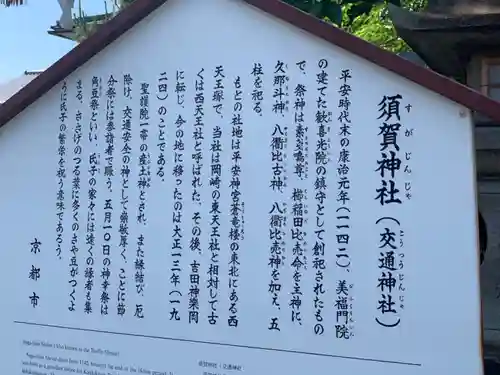 須賀神社（交通神社）
すがじんじゃ
こうつうじんじゃ
平安時代末の康治元年（一一四二）、美福門院
の建てた歓喜光院の鎮守として創祀されたもの
で、祭神は素戔嗚尊、櫛稲田比売命を主神に、
久那斗神、八衢比古神、八衢比売神を加え、五
柱を祀る。
もとの社地は平安神宮蒼竜楼の東北にある西
天王塚で、当社は岡崎の東天王社と相対して古
くは西天王社と呼ばれた。その後、吉田神楽岡
に転じ、今の地に移ったのは大正一三年（一九
二四）のことである。
聖護院一帯の産土神とされ、また縁結び、厄
除け、交通安全の神として崇敬厚く、ことに節
分祭には参詣者で賑う。五月一〇日の神幸祭は
角豆祭といい、氏子の家々には遠くの縁者も集
まる。ささげのつる葉に多くのさや豆がつくよ
うに氏子の繁栄を祝う意味であろう。
京都市